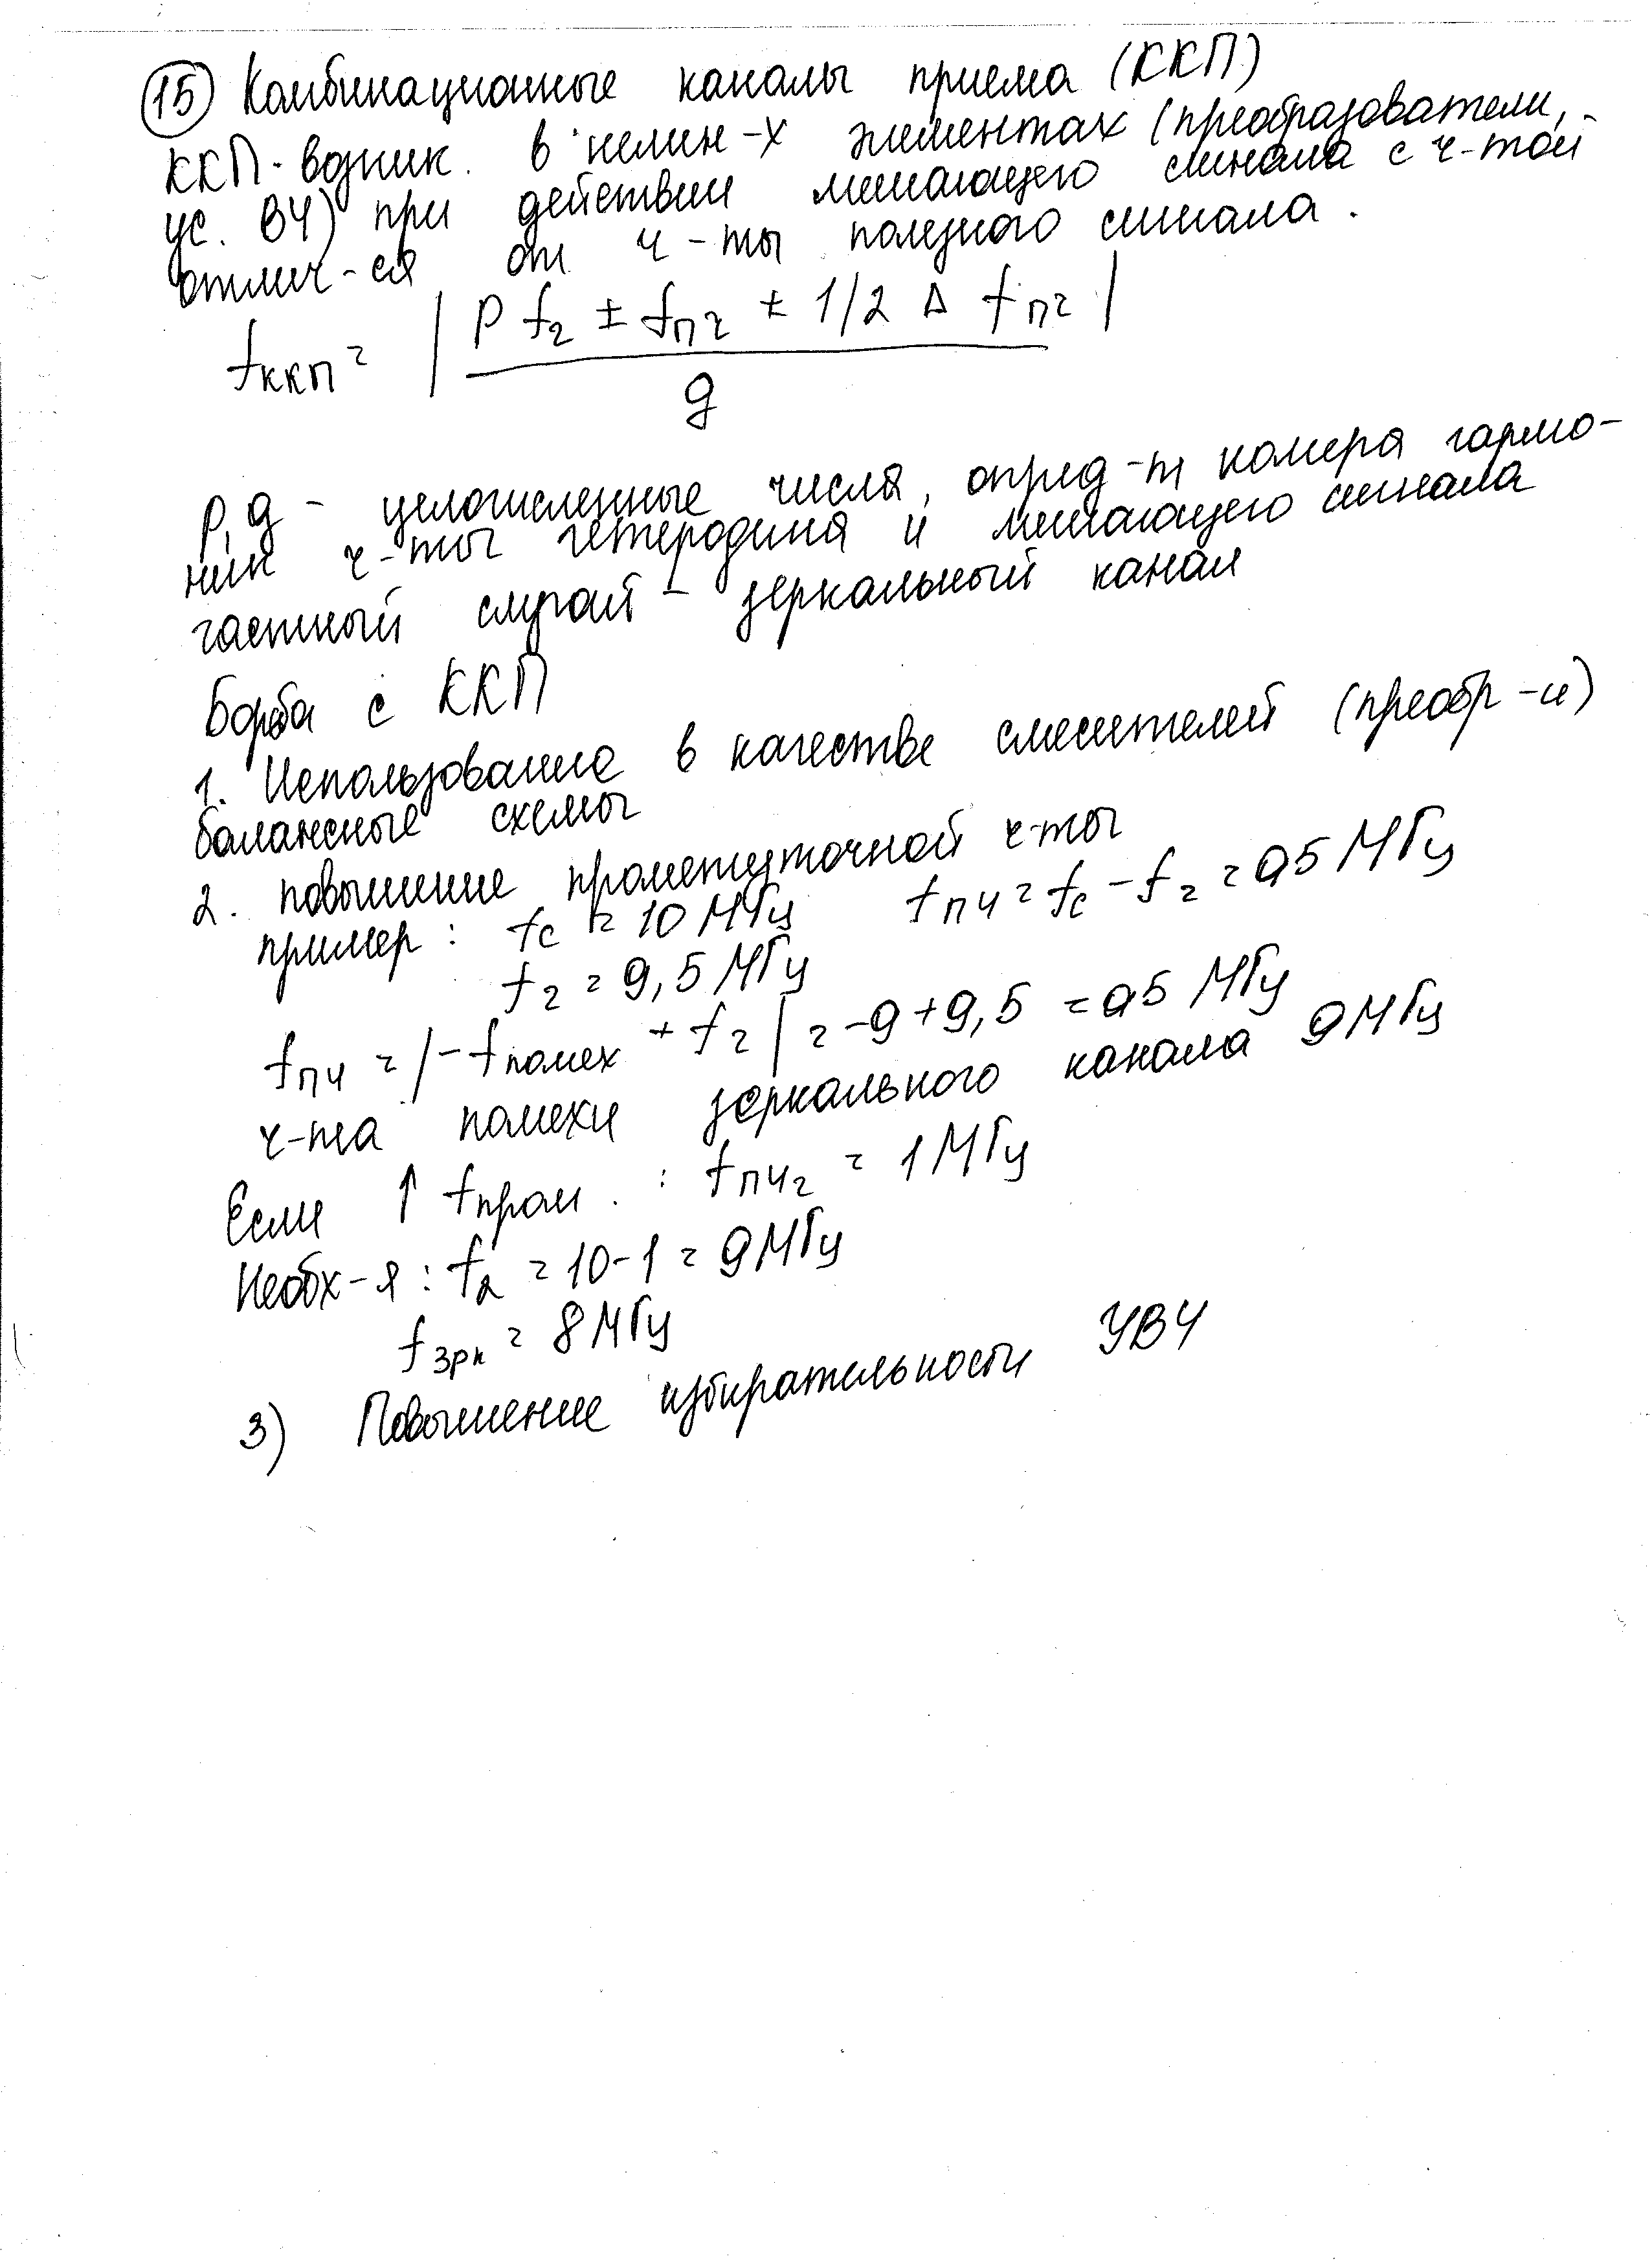 15) Комбинационные каналы приема (ККП)
ККП - возник. в нелин-х элементах (преобразователи,
ус. ВЧ) при действии мешающего сигнала с ч-той
отлич-ся от ч-ты полезного сигнала.
fккп = | (p fг ± fпч ± 1/2 Δ fпч) / q |
p, q - целочисленные числа, опред-т номера гармо-
ник ч-ты гетеродина и мешающего сигнала
частный случай - зеркальный канал
Борьба с ККП
1. Использование в качестве смесителей (преобр-и)
балансные схемы
2. повышение промежуточной ч-ты
пример: fc = 10 МГц fпч = fc - fг = 0,5 МГц
fг = 9,5 МГц
fпч = |- fпомех + fг| = -9+9,5 = 0,5 МГц
ч-та помехи зеркального канала 9 МГц
Если ↑ fпром. : fпч2 = 1 МГц
Необх-я : fг = 10-1 = 9 МГц
fзрк = 8 МГц
3) Повышение избирательности УВЧ